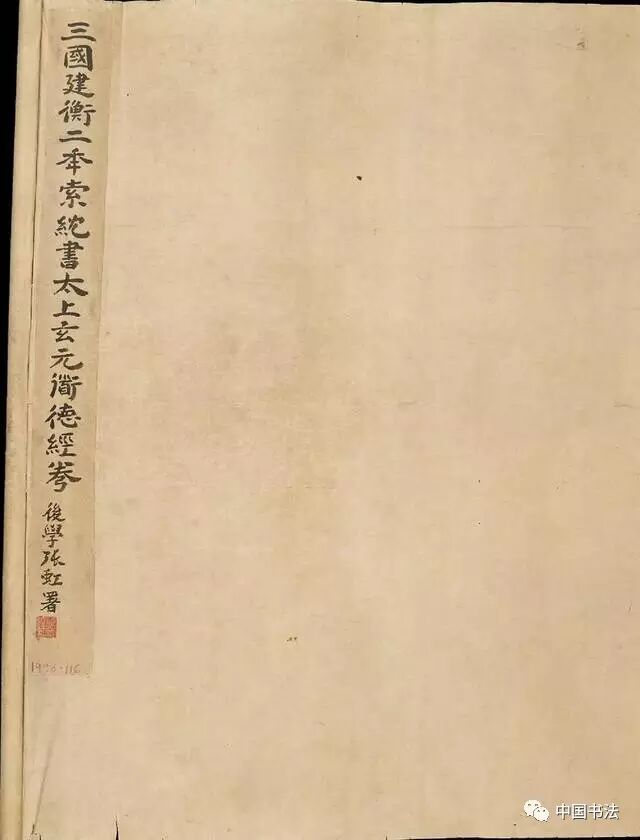 三國建衡二年索紞書太上玄元衟德經卷
後學張虹署
中国书法